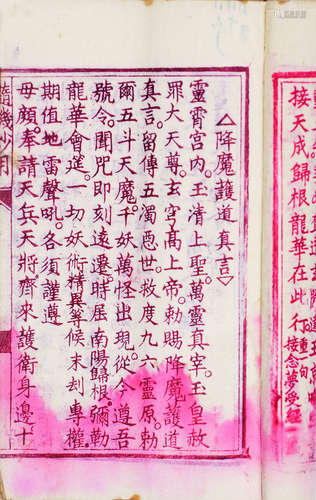 接天成歸根龍華在此
△降魔護道真言▽
靈霄宮内。玉清上聖。萬靈真宰。玉皇赦
罪大天尊。玄穹高上帝。勅賜降魔護道
真言。留傳五濁惡世。救度九六靈原。勅
爾五斗天魔。千妖萬怪出現。從今遵吾
號令。聞咒即刻遠遷。時居南陽歸根。彌勒
龍華會逆。一切妖術精異等候末刼專權
期值地雷聲吼。各須謹遵
毋頗。奉請天兵天將齊來護衛身邊十